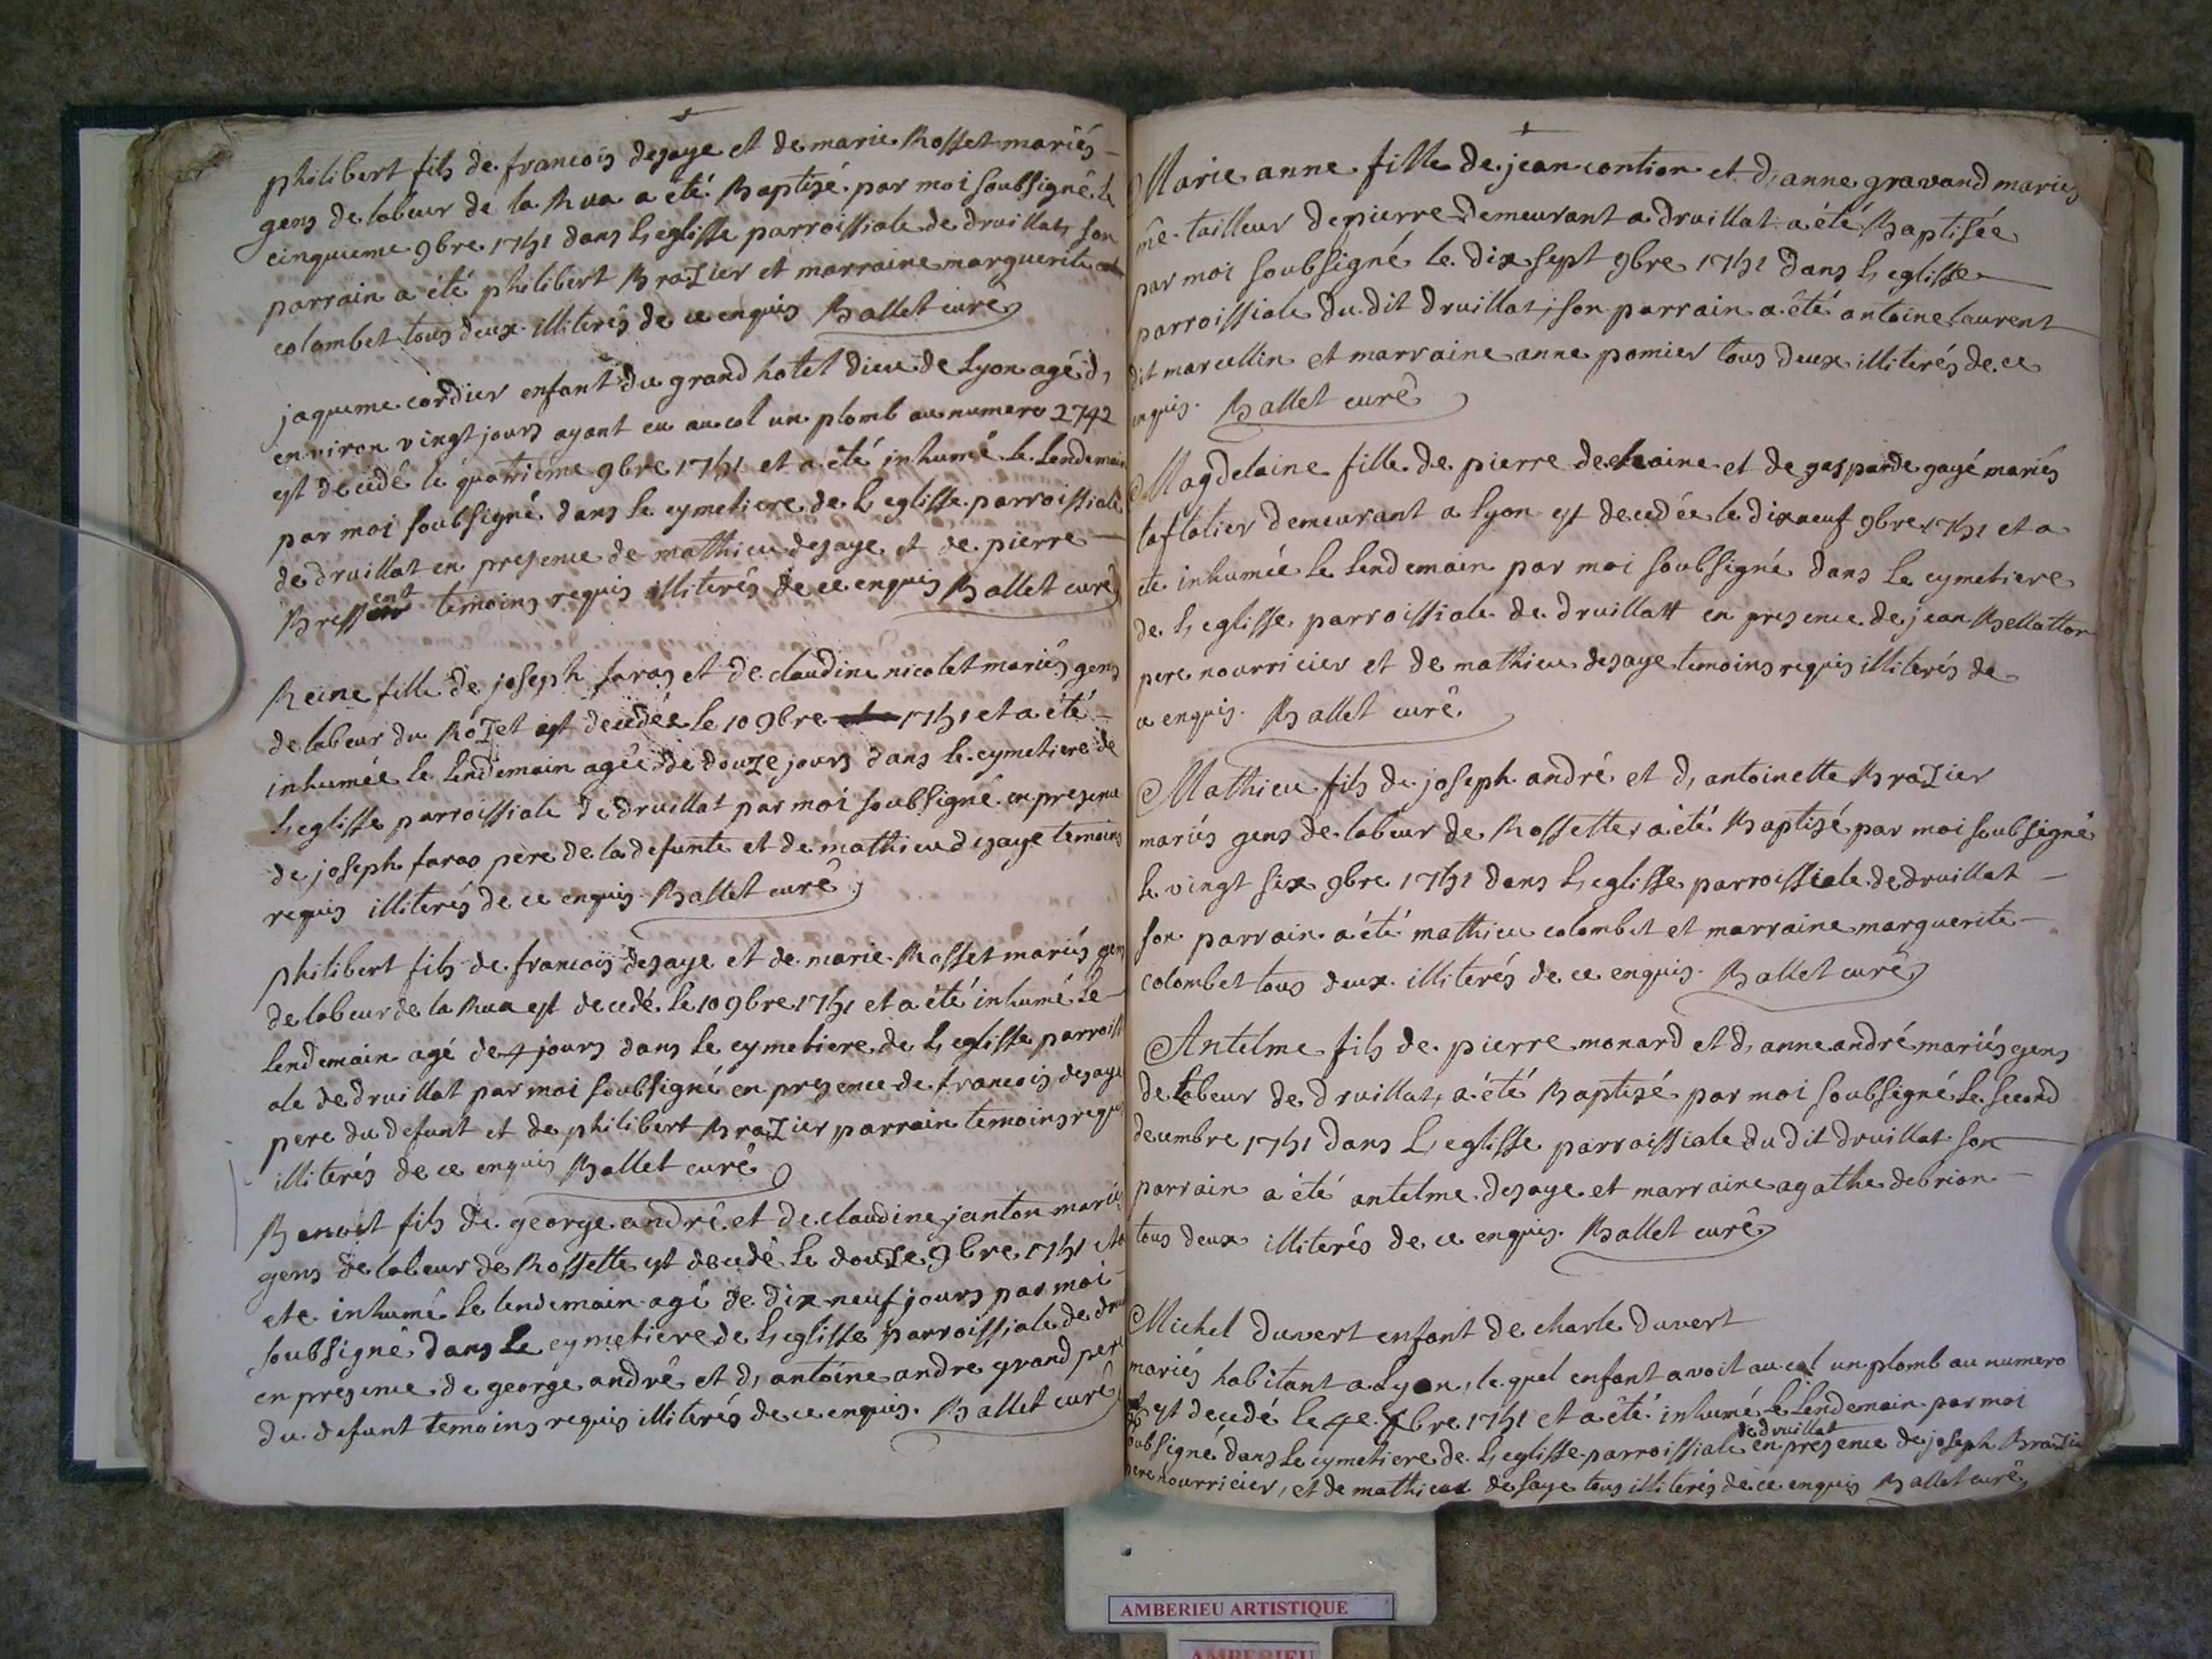 philibert fils de francois dezaye et de marie Rosset mariés
gens de labeur de la Rua a été Baptizé par moi soubsigné le
cinquieme 9bre 1751 dans L, eglisse parroissiale de druillat, son
parrain a été philibert BraZier et marraine marguerite
colombet tous deux illiterés de ce enquis Ballet curé
jaqueme cordier enfant du grand hotel dieu de Lyon agé d,
environ vingt jours ayant eu au col un plomb au numero 2742
est decédé le quatrieme 9bre 1751 et a été inhumé le Lendemain
par moi soubsigné dans le cymetiere de L, eglisse parroissiale
de druillat en presence de mathieu dezaye et de pierre
temoins requis illiterés de ce enquis Ballet curé
Reine fille de joseph faras et de claudine nicolet mariés gens
de labeur du RoZet est decedée le 10 9bre 1751 et a été
inhumée le lendemain agée de douze jours dans le cymetiere de
L, eglisse parroissiale de druillat par moi soubsigné en presence
de joseph faras père de la defunte et de mathieu dezaye temoins
requis illiterés de ce enquis Ballet curé
philibert fils de francois dezaye et de marie Rosset mariés gens
de labeur de la Rua est decedé le 10 9bre 1751 et a été inhumé le
lendemain agé de 4 jours dans le cymetiere de L, eglisse parroissi
ale de druillat par moi soubsigné en presence de francois dezaye
pere du defunt et de philibert BraZier parrain temoins requis
illiterés de ce enquis Ballet curé
Benoit fils de george andré et de claudine janton mariés
gens de labeur de Rossette est decedé le douze 9bre 1751 et a
ete inhumé le lendemain agé de dix neuf jours par moi
soubsigné dans le cymetiere de L, eglisse parroissiale de
en presence de george andré et d, antoine andre grand pere
du defunt temoins requis illiterés de ce enquis. Ballet curé
Marie anne fille de jean contion et d, anne gravand mariés
me tailleur de pierre demeurant a druillat a été Baptisée
par moi soubsigné le dix sept 9bre 1751 dans L, eglisse
parroissiale du dit druillat, son parrain a été antoine laurent
dit marcellin et marraine anne pomier tous deux illiterés de ce
enquis. Ballet curé
Magdelaine fille de pierre de et de gasparde gayé mariés
taflatier demeurant a Lyon est decedée le dixneuf 9bre 1751 et a
ete inhumée le lendemain par moi soubsigné dans le cymetiere
de L, eglisse parroissiale de druillatt en presence de jean Bellatton
pere nourricier et de mathieu dezaye temoins requis illiterés de
ce enquis. Ballet curé.
Mathieu fils de joseph andré et d, antoinette BraZier
mariés gens de labeur de Rossette, a été Baptizé par moi soubsigné
le vingt six 9bre 1751 dans L, eglisse parroissiale de druillat
son parrain a été mathieu colombet et marraine marguerite
colombet tous deux illiterés de ce enquis. Ballet curé
Antelme fils de pierre monard et d, anne andré mariés gens
de labeur de druillat, a été Baptizé par moi soubsigné le second
decembre 1751 dans L, eglisse parroissiale du dit druillat son
parrain a été antelme dezaye et marraine agathe debrion
tous deux illiterés de ce enquis. Ballet curé
Michel duvert enfant de charle duvert
mariés habitant a Lyon, le quel enfant avoit au col un plomb au numero
est decedé le 4e 1751 et a été inhumé le lendemain par moi
soubsigné dans le cymetiere de L, eglisse parroissiale de druillat en presence de joseph BraZier
pere nourricier, et de mathieu desaye tous illiterés de ce enquis Ballet curé
AMBERIEU ARTISTIQUE
AMBERIEU